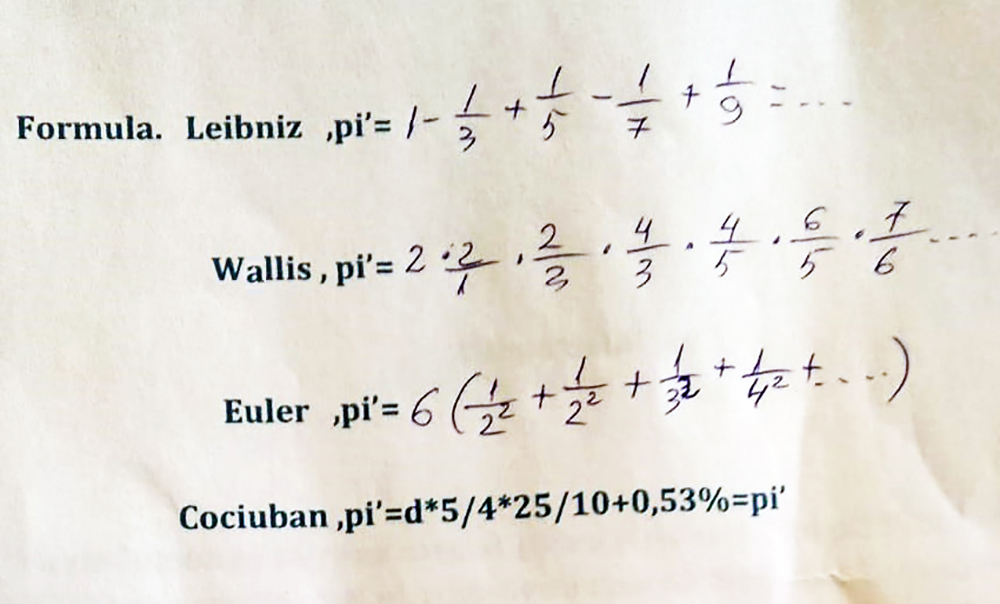 Formula. Leibniz ,pi'= 1 - 1/3 + 1/5 - 1/7 + 1/9 = ....
Wallis , pi'= 2 · 2/1 · 2/3 · 4/3 · 4/5 · 6/5 · 7/6 ....
Euler ,pi'= 6 (1/2² + 1/2² + 1/3² + 1/4² + ....)
Cociuban ,pi'=d*5/4*25/10+0,53%=pi'